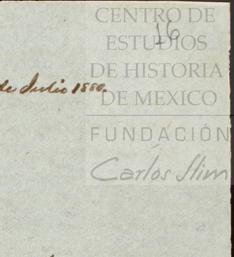 CENTRO DE
16
ESTUDIOS
DE HISTORIA
de Julio 1880.
DE MEXICO
FUNDACIÓN
Carlos Slim